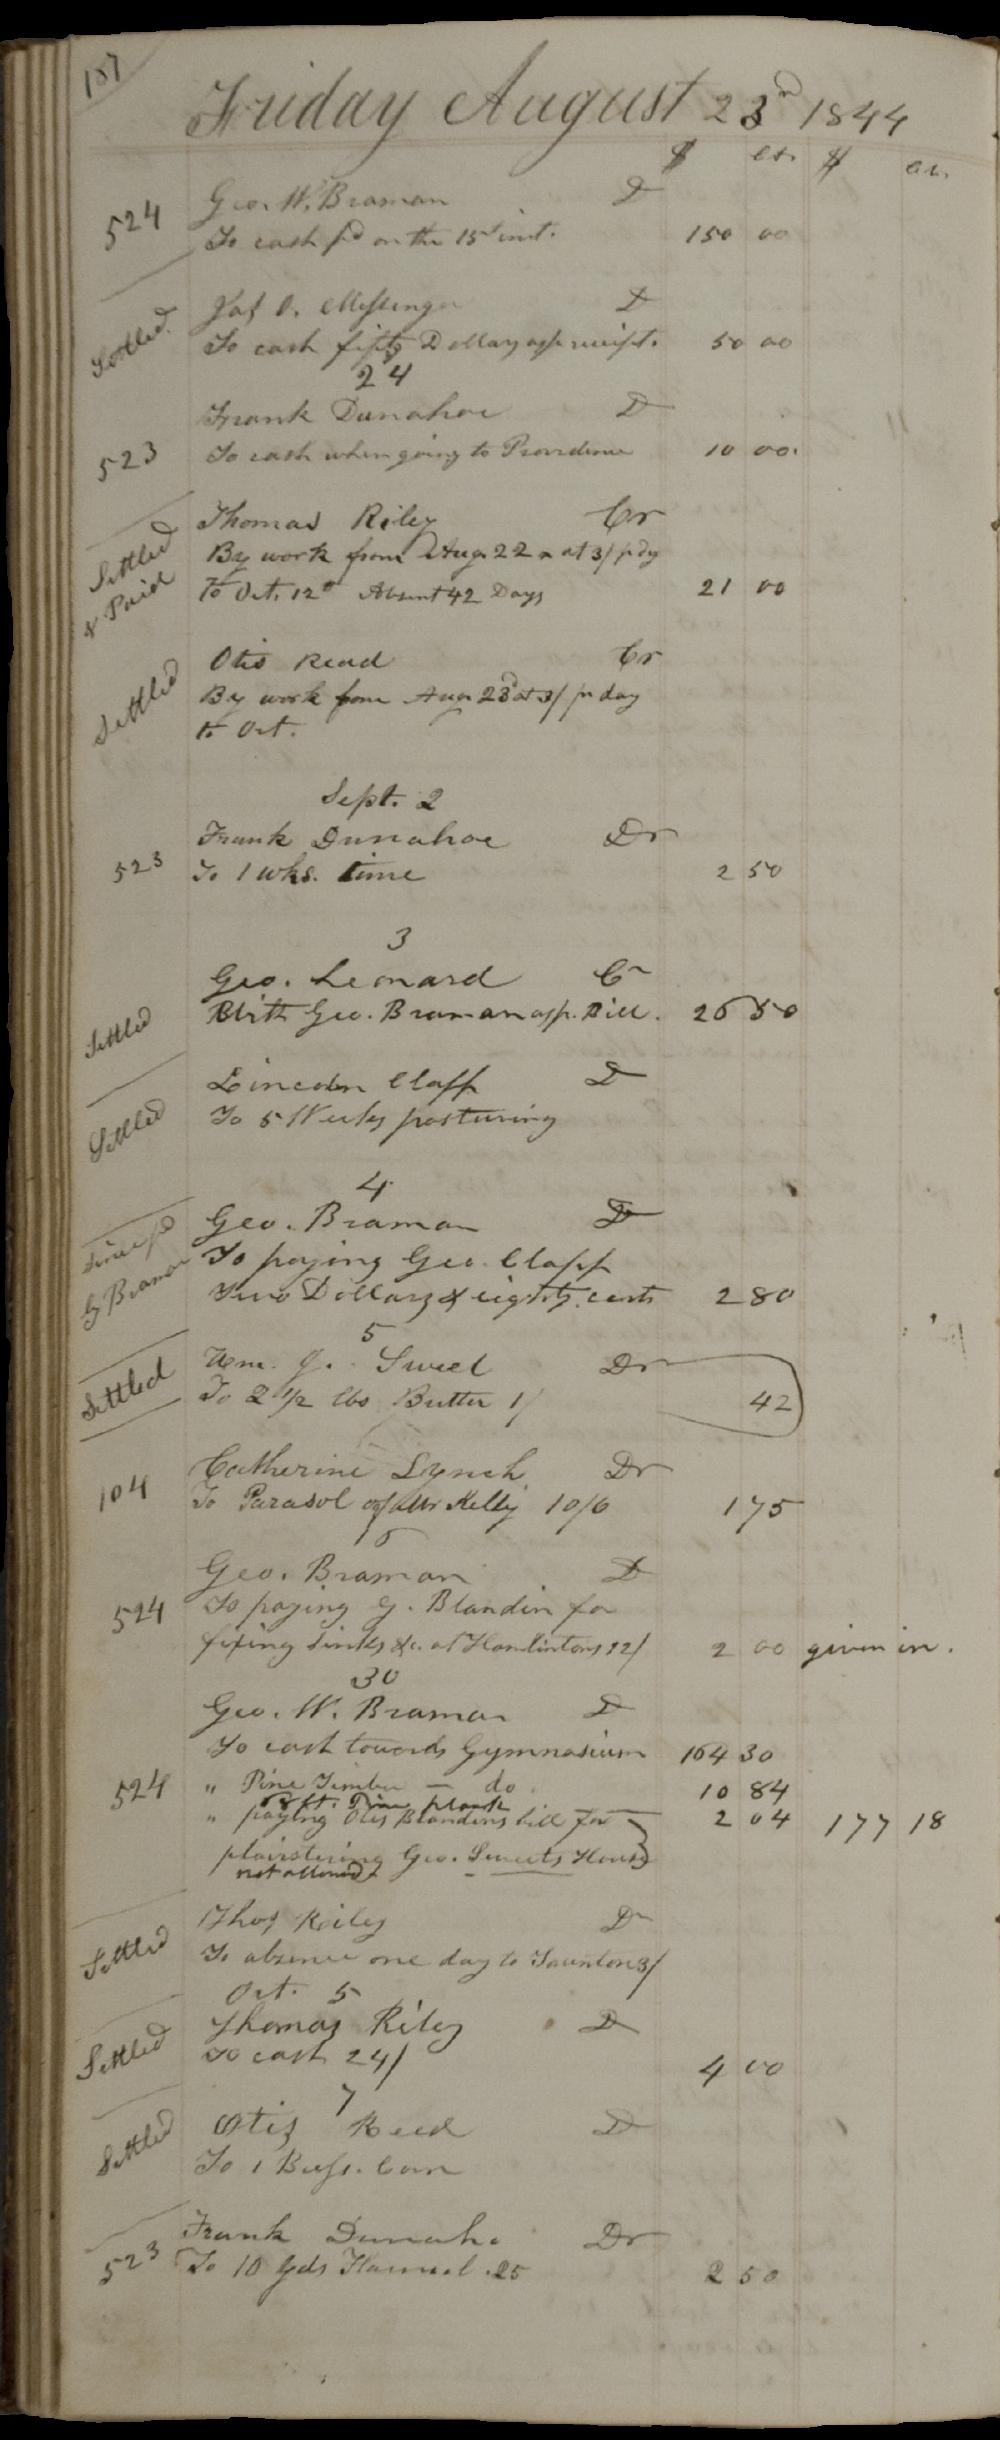 187
Friday August 23d 1844
$ cts. $ cts.
524 Geo. W. Braman D
To cash pd on the 15th inst. 150 00
Settled. Jas O. Messenger D
To cash fifty Dollars as pr receipt. 50 00
24
Frank Dunahoe D
523 To cash when going to Providence 10 00.
Settled & Paid Thomas Riley Cr
By work from Aug. 22 at 3/ pr dy
To Oct. 12th Absent 42 Days 21 00
Settled Otis Read Cr
By work from Aug. 23d at 3/ pr day
to Oct.
Sept. 2
Frank Dunahoe Dr
523 To 1 wks. time 2 50
3
Geo. Leonard Cr
Settled With Geo. Braman as pr. Bill. 26 50
Lincoln Clapp D
Settled To 5 Weeks pasturing
4
Geo. Braman D
Since pd by Braman To paying Geo. Clapp
Two Dollars & eighty cents 2 80
5
Settled Wm. G. Sweet Dr
To 2 1/2 lbs Butter 1/ 42
104 Catherine Lynch Dr
To Parasol of Mr Kelly 10/6 1 75
6
Geo. Braman D
524 To paying G. Blandin for
fixing sinks &c. at Hamlintons 12/ 2 00 given in.
30
Geo. W. Braman D
To cash towards Gymnasium 164 30
524 " Pine Timber — do 10 84
8 ft. Pine plank
" paying Otis Blandins bill for 2 04 177 18
plairstering Geo. Sweets House
not allowed
Thos Riley Dr
Settled To absence one day to Taunton 3/
Oct. 5
Thomas Riley D
Settled To cash 24/ 4 00
7
Otis Reed D
Settled To 1 Bush. Corn
Frank Dunaho Dr
523 To 10 yds Flannel .25 2 50